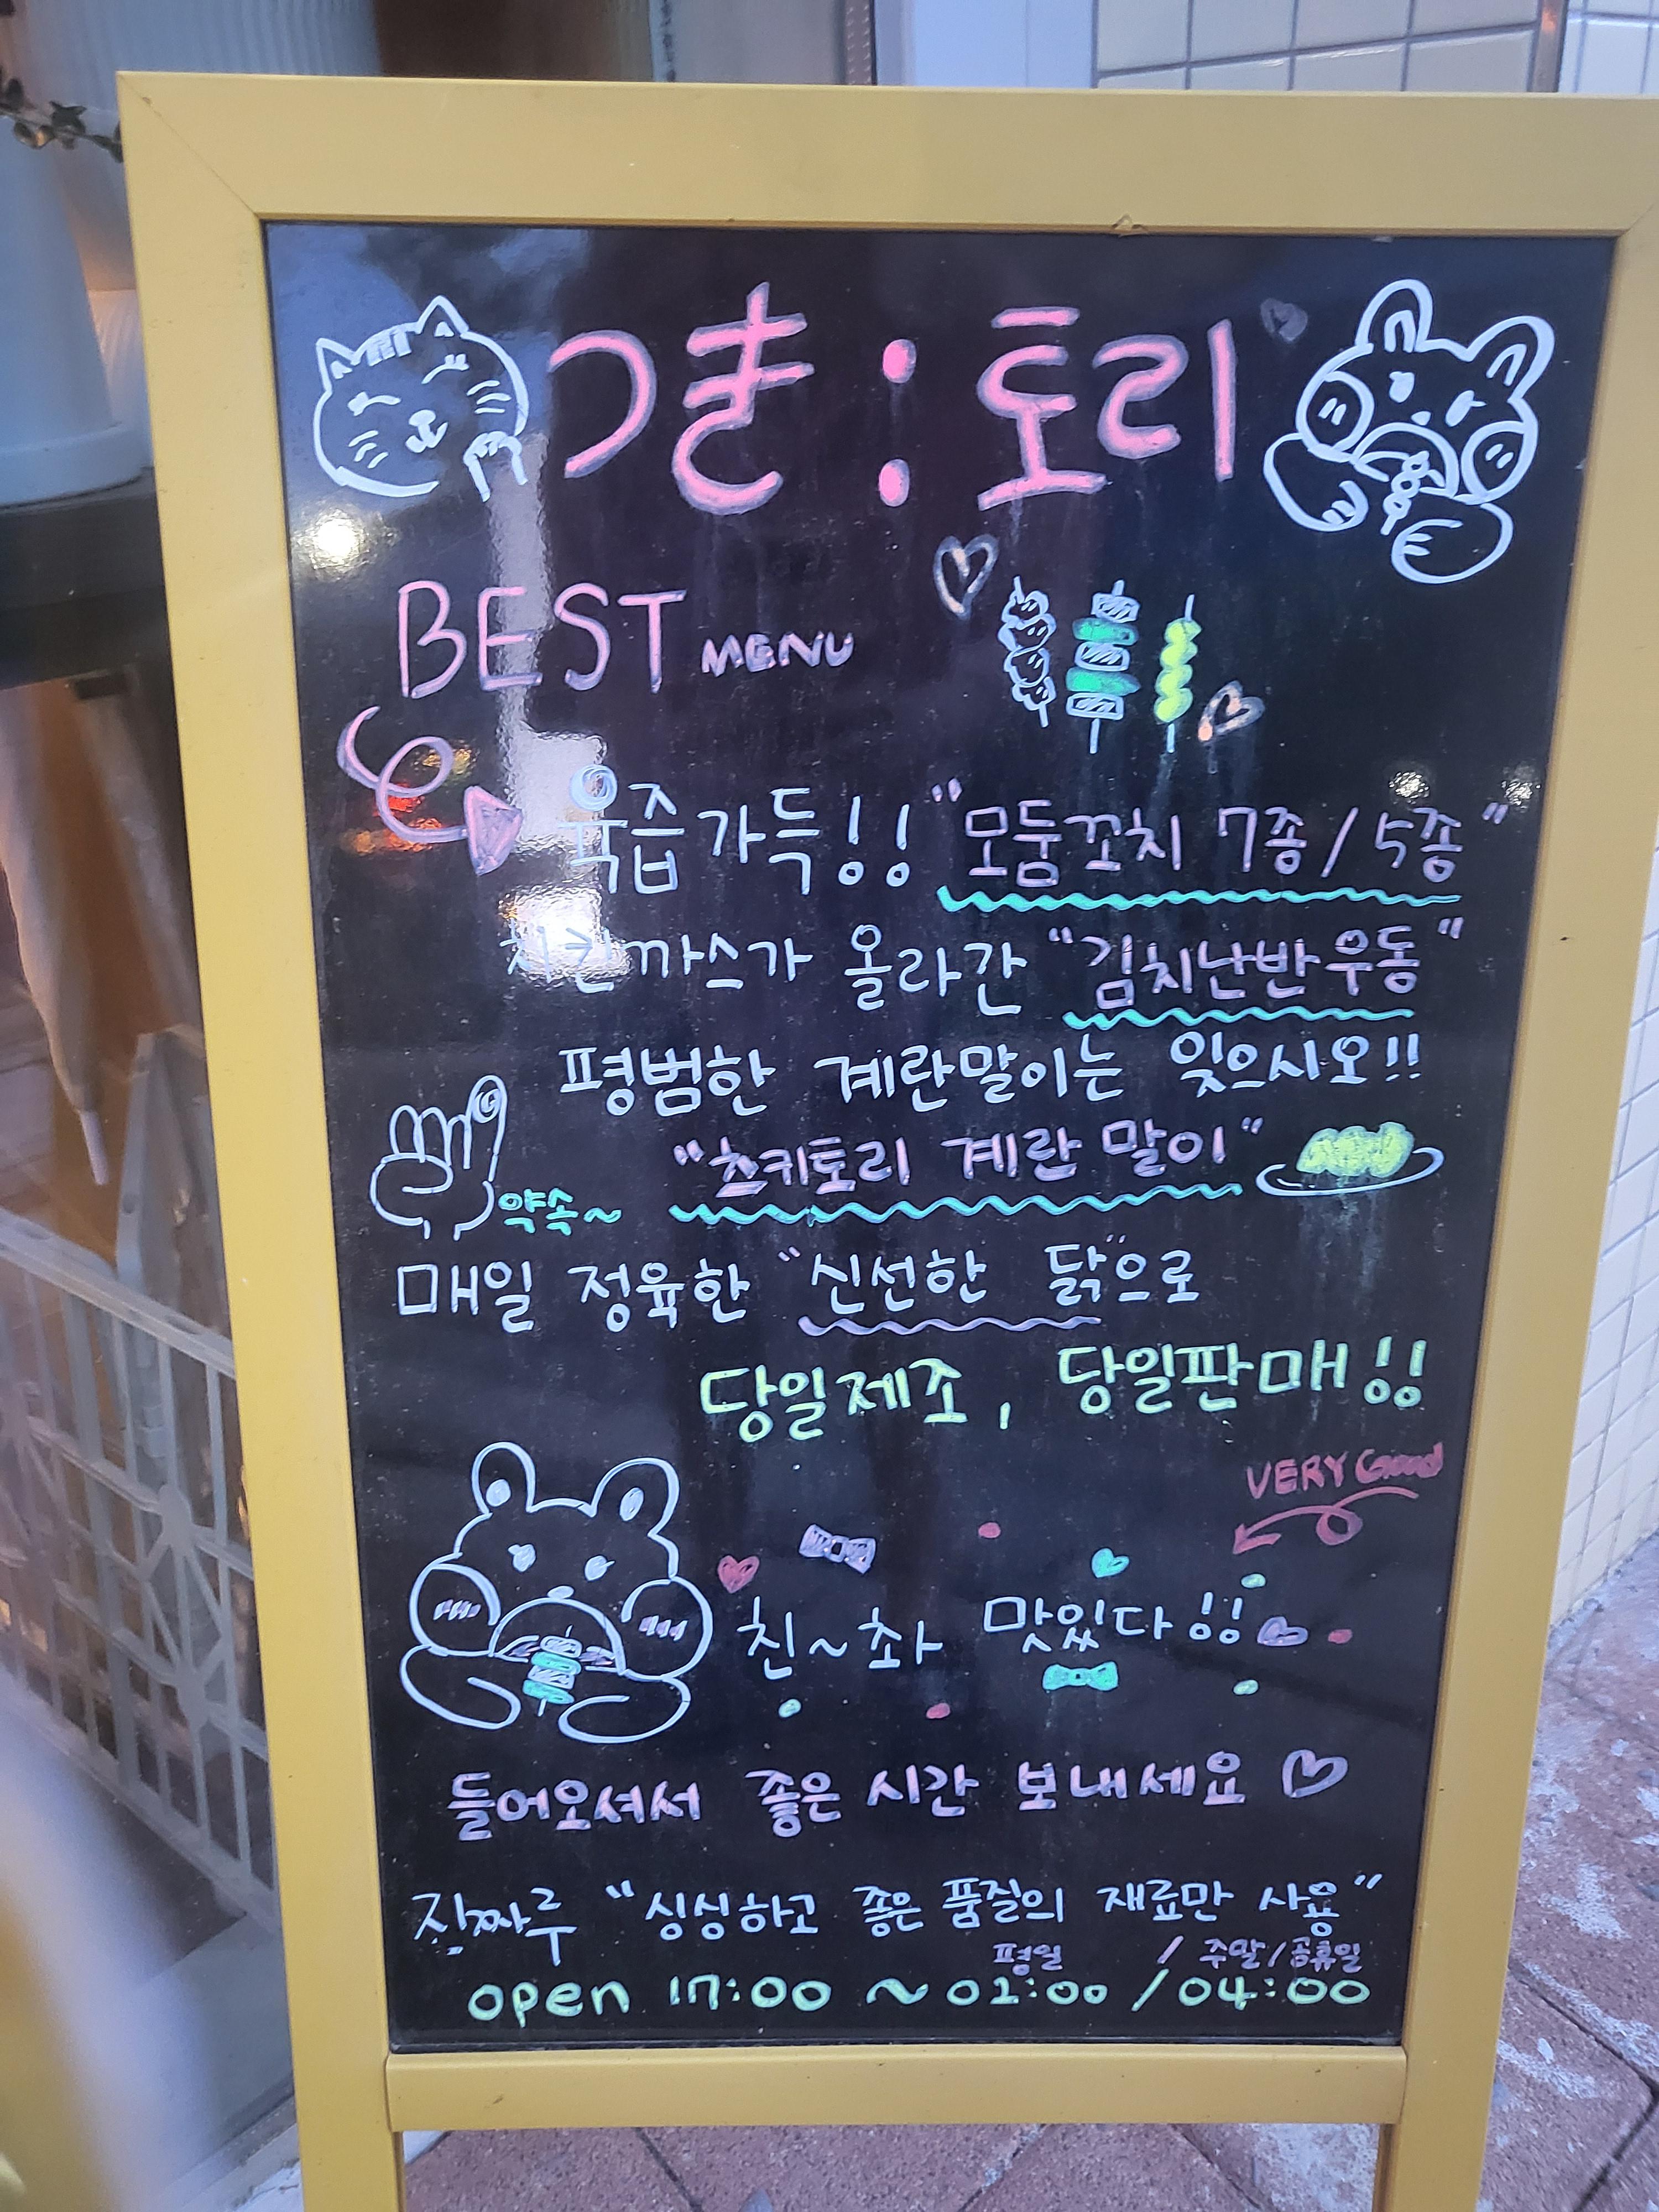 つき:토리
BEST MENU
육즙가득!! "모둠꼬치 7종/5종"
치킨까스가 올라간 "김치난반우동"
평범한 계란말이는 잊으시오!!
"츠키토리 계란말이"
약속~
매일 정육한 "신선한 닭"으로
당일제조, 당일판매!!
VERY Good
친~촤 맛있다!!
들어오셔서 좋은 시간 보내세요
진짜루 "싱싱하고 좋은 품질의 재료만 사용"
평일 / 주말/공휴일
open 17:00 ~ 02:00 /04:00